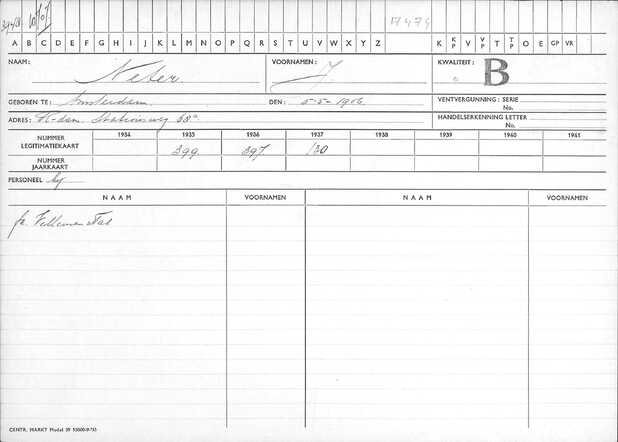 A B C D E F G H I J K L M N O P Q R S T U V W X Y Z K KP V VP T TP O E GP VR
NAAM: Neter VOORNAMEN: J KWALITEIT: B
GEBOREN TE: Amsterdam DEN: 5-5- 1906 VENTVERGUNNING: SERIE
No.
ADRES: Stationsweg 38a HANDELSERKENNING LETTER
No.
1934 1935 1936 1937 1938 1939 1940 1941
NUMMER LEGITIMATIEKAART 399 397 130
NUMMER JAARKAART
PERSONEEL bij
NAAM VOORNAMEN NAAM VOORNAMEN
fa.
CENTR. MARKT Model 39